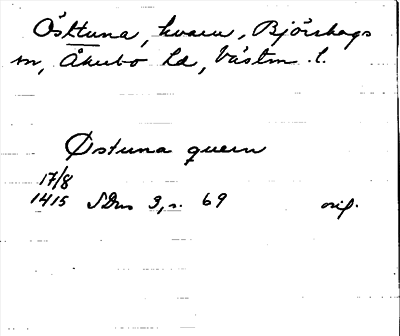 Östtuna, kvarn, Björskogs
sn, Åkerbo hd, Västm. l.
Østuna quern
17/8
1415 SDns 3, s. 69 orig.